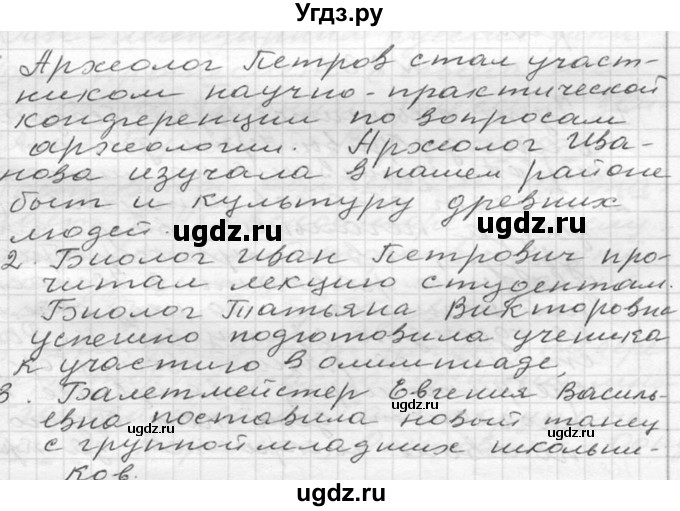 Угдз.ру
Археолог Петров стал участ-
ником научно-практической
конференции по вопросам
археологии. Археолог Ива-
нова изучала в нашем районе
быт и культуру древних
людей.
ugdz.ru ugdz.ru
2. Биолог Иван Петрович про-
читал лекцию студентам.
Биолог Татьяна Викторовна
успешно подготовила ученика
к участию в олимпиаде.
3. Балетмейстер Евгения Василь-
ugdz.ru
евна поставила новый танец
ugdz.ru
с группой младших школьни-
ugdz.ru
ков.
ugdz.ru